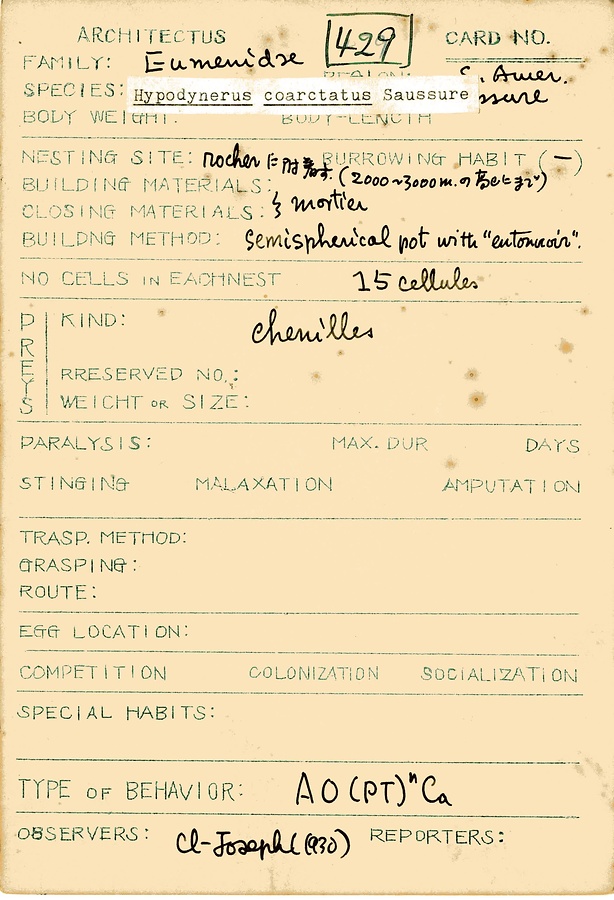 ARCHITECTUS 429 CARD NO.
FAMILY: Eumenidae
SPECIES: Hypodynerus coarctatus Saussure S. Amer.
BODY WEIGHT: BODY-LENGTH
NESTING SITE: rocher に附着す. BURROWING HABIT (—)
BUILDING MATERIALS: (2000~3000m.の高さまで)
CLOSING MATERIALS: } mortier
BUILDNG METHOD: Semispherical pot with "entonnoir".
NO CELLS IN EACHNEST 15 cellules
PREYS KIND: chenilles
RRESERVED NO.:
WEICHT OR SIZE:
PARALYSIS: MAX. DUR DAYS
STINGING MALAXATION AMPUTATION
TRASP. METHOD:
GRASPING:
ROUTE:
EGG LOCATION:
COMPETITION COLONIZATION SOCIALIZATION
SPECIAL HABITS:
TYPE OF BEHAVIOR: AO(PT)ⁿCa
OBSERVERS: Cl-Joseph (1930) REPORTERS: